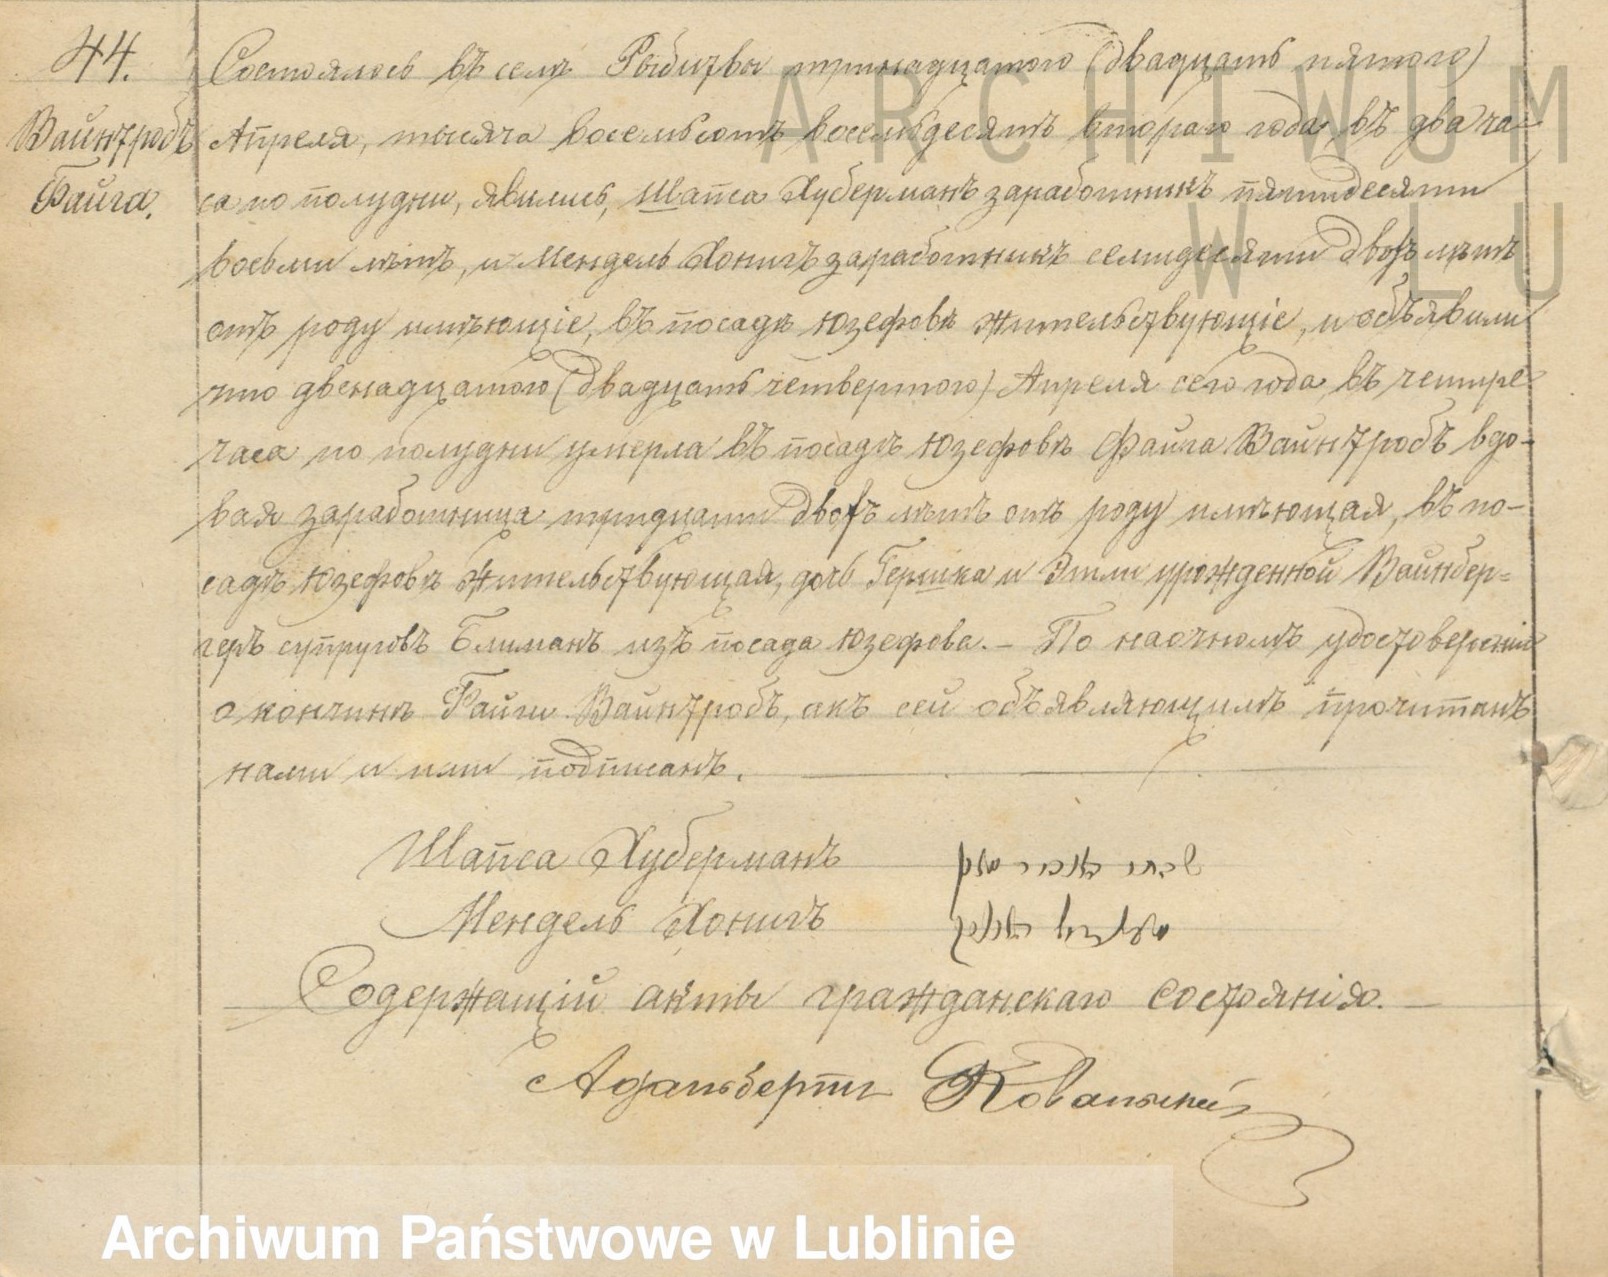 44.
Вайнтробъ
Файга.
Состоялось въ селѣ Рыбитвы тринадцатого (двадцать пятого)
Апреля, тысяча восемьсотъ восемьдесятъ втораго года въ два ча-
са по полудни, явились, Шапса Хуберманъ заработникъ пятидесяти
восьми лѣтъ, и Мендель Хонигъ заработникъ семидесяти двохъ лѣтъ
отъ роду имѣющіе, въ посадѣ Юзефовѣ жительствующіе, и объявили
что двенадцатого (двадцать четвертого) Апреля сего года, въ четыре
часа по полудни умерла въ посадѣ Юзефовѣ Файга Вайнтробъ вдо-
вая заработница тридцати двохъ лѣтъ отъ роду имѣющая, въ по-
садѣ Юзефовѣ жительствующая, дочь Гершка и Этли урожденной Вайнбер-
геръ супруговъ Блиманъ изъ посада Юзефова. – По наочномъ удостоверенію
о кончинѣ Файги Вайнтробъ, актъ сей объявляющимъ прочитанъ
нами и ими подписанъ.
Шапса Хуберманъ
Мендель Хонигъ
Содержащій акты гражданскаго состоянія.
Адальбертъ Ковальскій
ARCHIWUM
W LU
Archiwum Państwowe w Lublinie